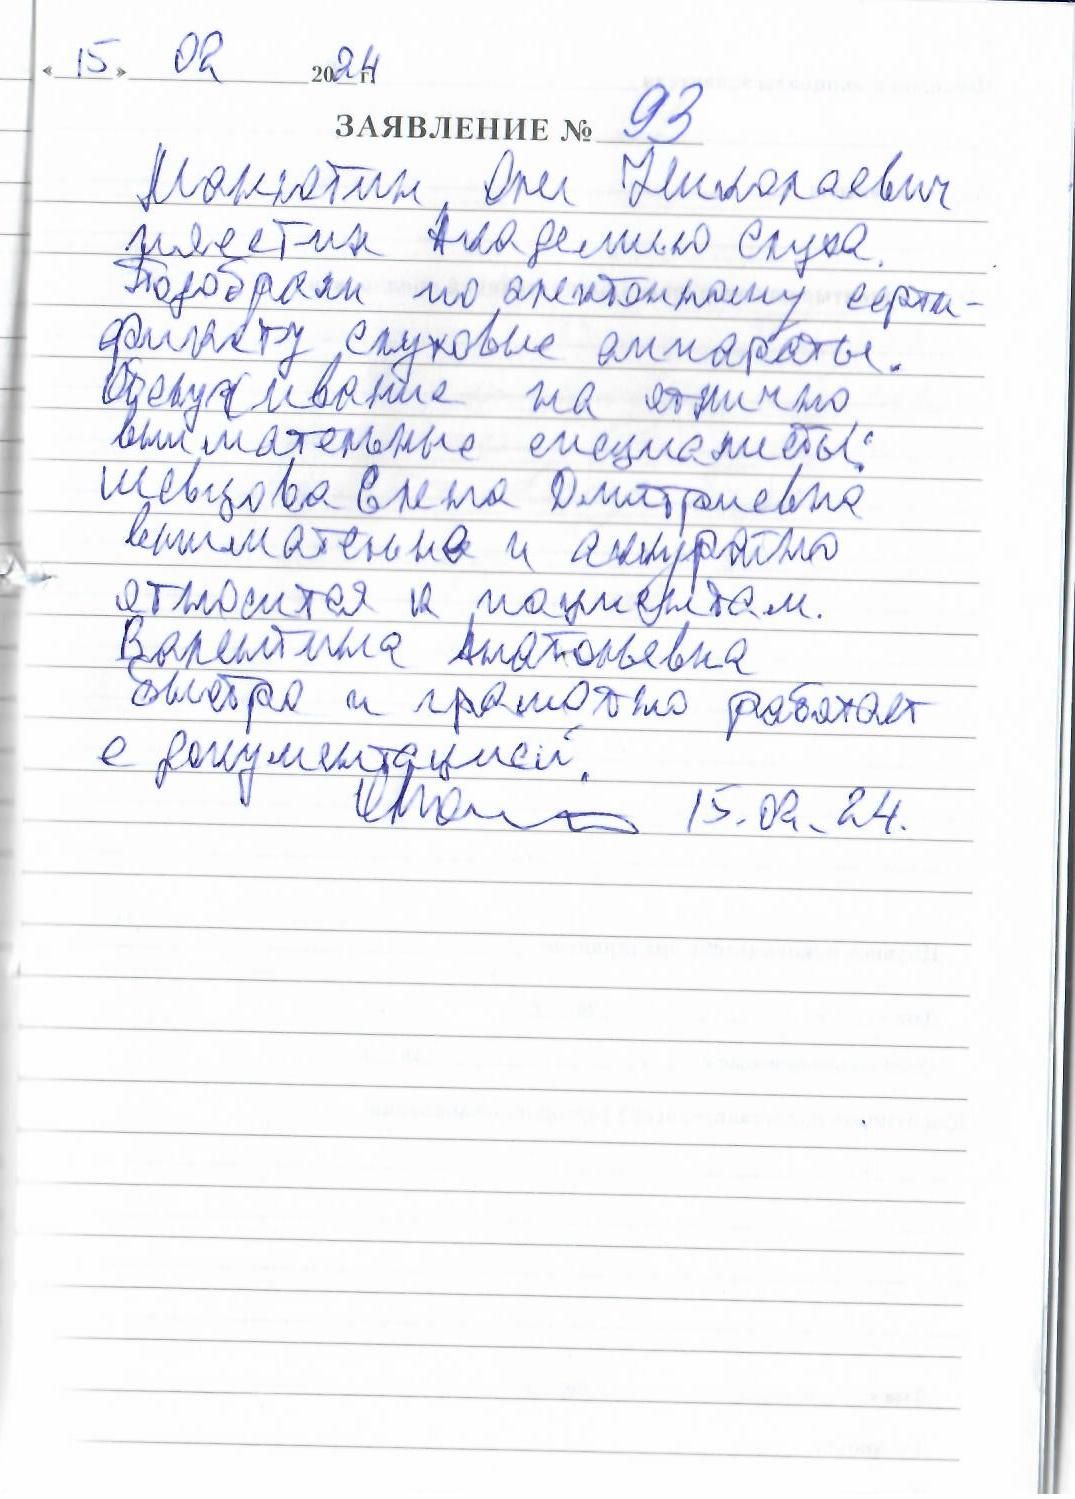 « 15 » 02 2024 г.
ЗАЯВЛЕНИЕ № 93
Николаевич
Академию слуха.
Подобрали по электонному серти-
фикату слуховые аппараты.
Обслуживание на отлично
внимательные специалисты:
Шевцова Елена Дмитриевна
внимательна и аккуратно
относится к пациентам.
Валентина Анатольевна
быстро и грамотно работает
с документацией.
15.02.24.